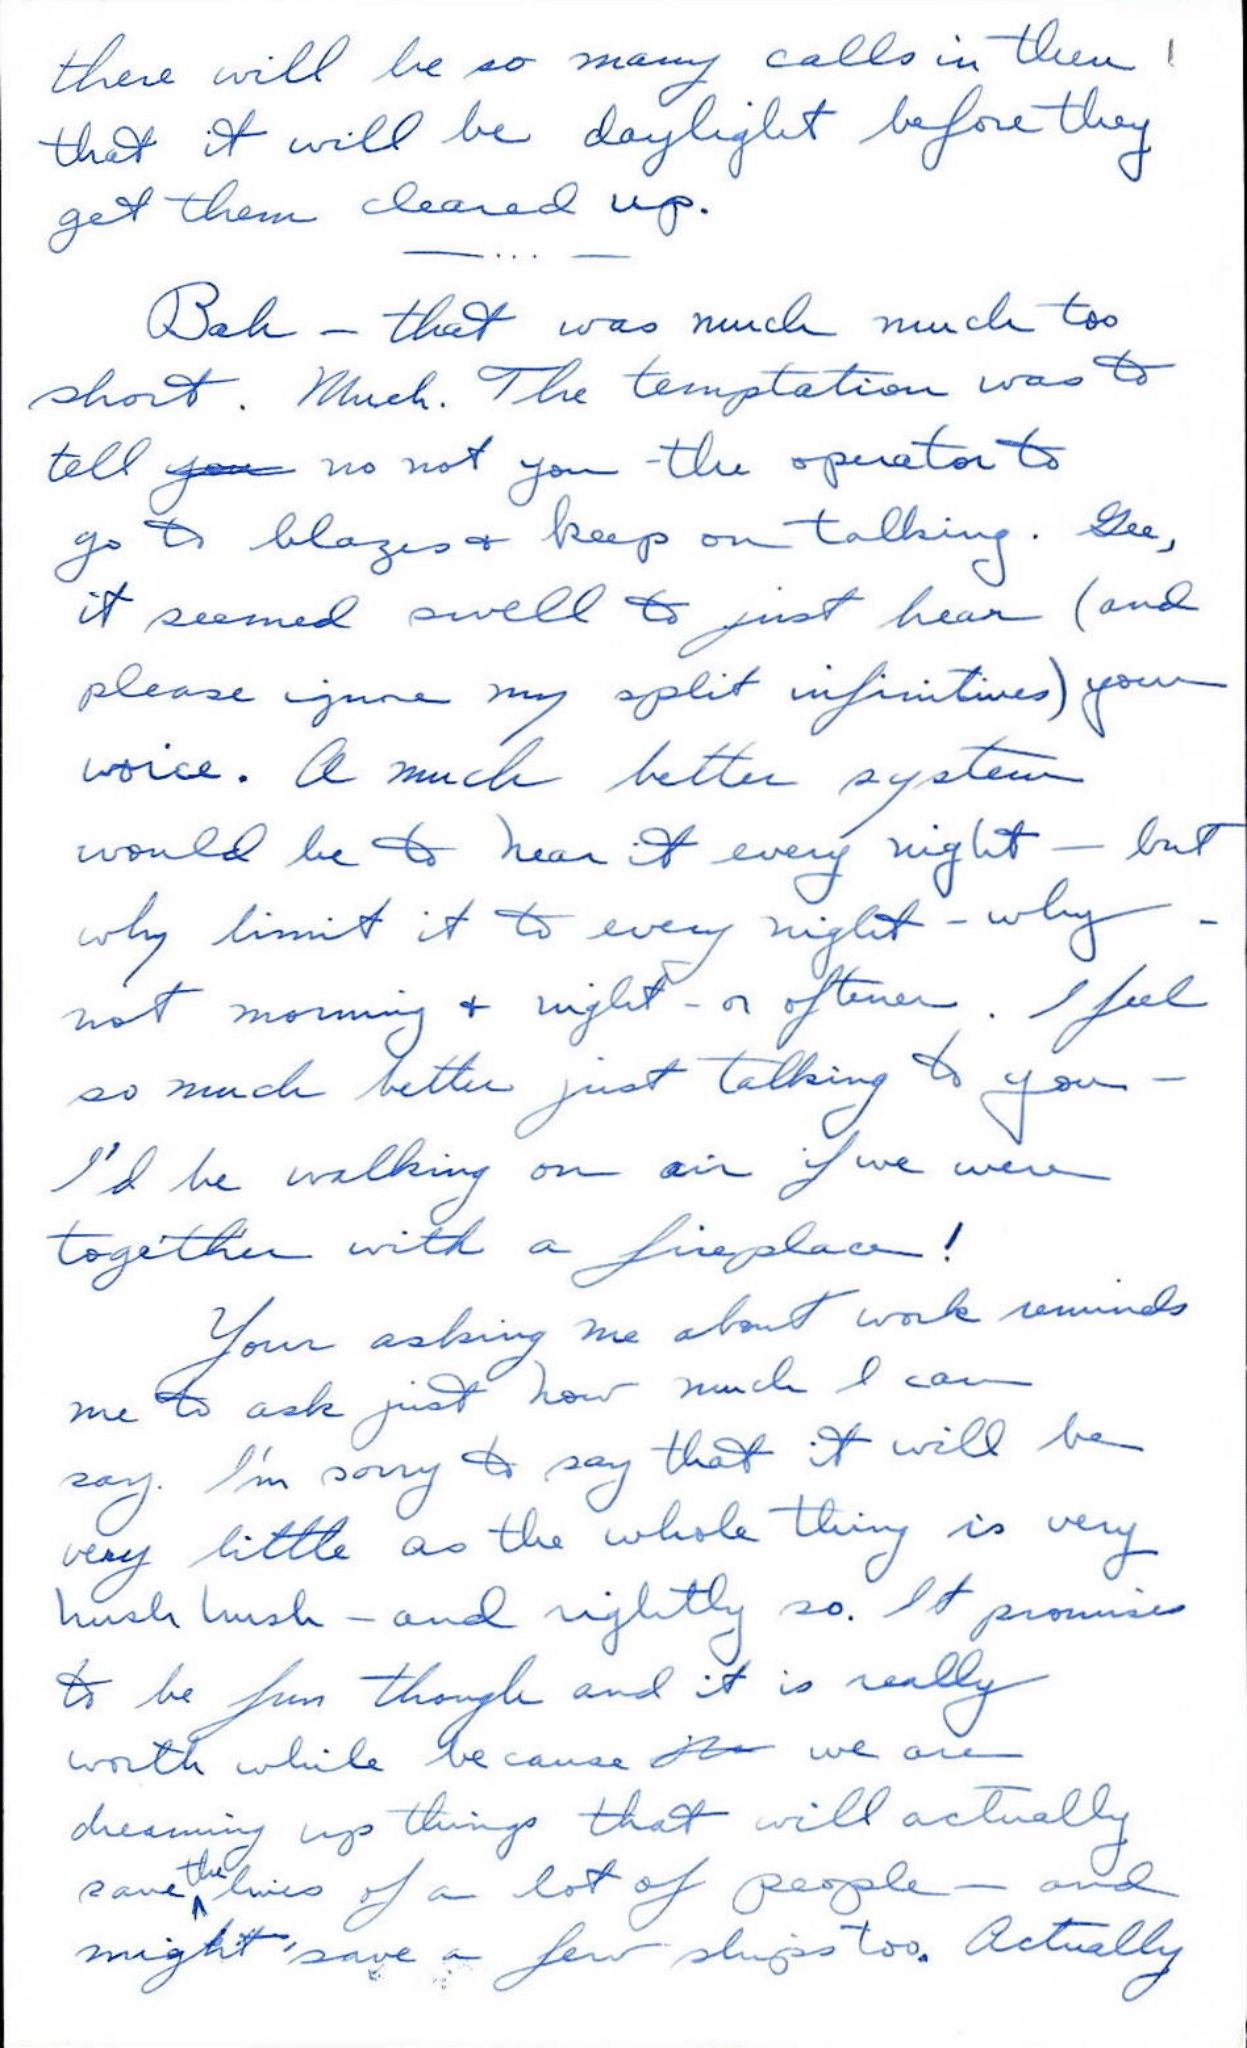 there will be so many calls in then
that it will be daylight before they
get them cleared up.
— ... —
Bah — that was much much too
short. Much. The temptation was to
tell you no not you - the operator to
go to blazes & keep on talking. Gee,
it seemed swell to just hear (and
please ignore my split infinitives) your
voice. A much better system
would be to hear it every night — but
why limit it to every night - why -
not morning & night - or oftener. I feel
so much better just talking to you -
I'd be walking on air if we were
together with a fireplace!
Your asking me about work reminds
me to ask just how much I can
say. I'm sorry to say that it will be
very little as the whole thing is very
hush hush - and rightly so. It promises
to be fun though and it is really
worth while because we are
dreaming up things that will actually
save the lives of a lot of people — and
might save a few ships too. Actually